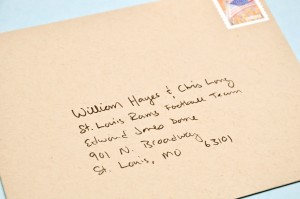 William Hayes & Chris Long
St. Louis Rams Football Team
Edward Jones Dome
901 N. Broadway
St. Louis, MO 63101